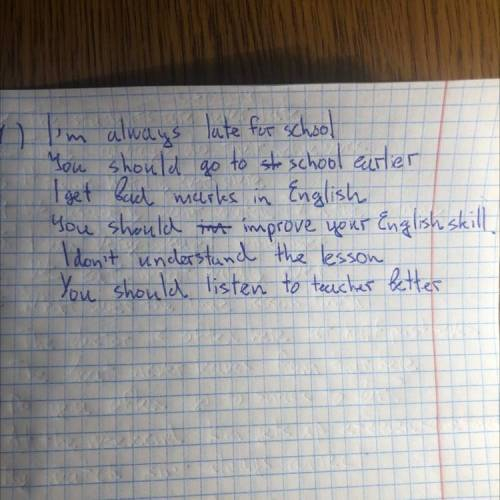 ) I'm always late for school
You should go to school earlier
I get bad marks in English
You should improve your English skill.
I don't understand the lesson
You should listen to teacher better